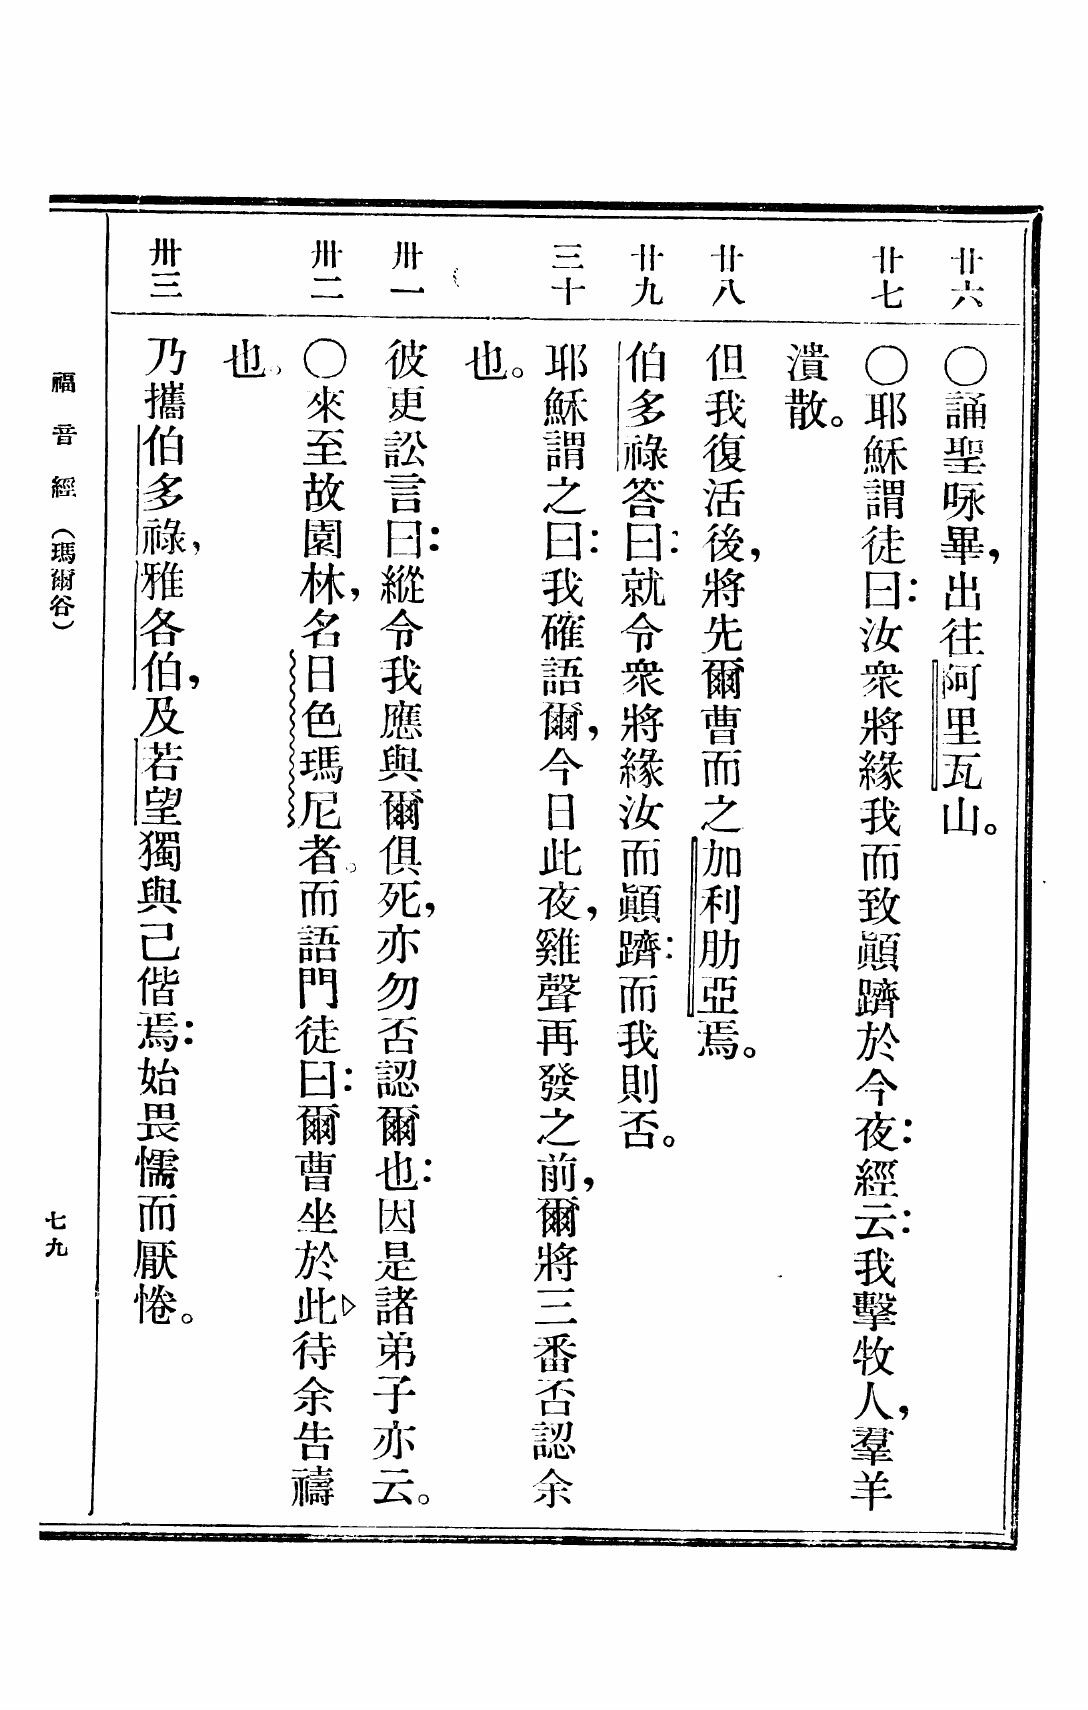 廿六
〇誦聖咏畢，出往阿里瓦山。
廿七
〇耶穌謂徒曰：汝衆將緣我而致顚躋於今夜：經云：我擊牧人，羣羊
潰散。
廿八
但我復活後，將先爾曹而之加利肋亞焉。
廿九
伯多祿答曰：就令衆將緣汝而顚躋：而我則否。
三十
耶穌謂之曰：我確語爾，今日此夜，雞聲再發之前，爾將三番否認余
也。
卅一
彼更訟言曰：縱令我應與爾俱死，亦勿否認爾也：因是諸弟子亦云。
卅二
〇來至故園林，名日色瑪尼者。而語門徒曰：爾曹坐於此，待余告禱
也。
卅三
乃攜伯多祿，雅各伯，及若望獨與己偕焉：始畏懦而厭惓。
福音經（瑪爾谷）
七九